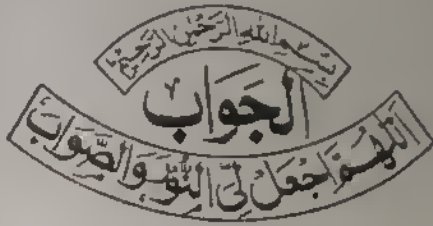 بِسْمِ اللهِ الرَّحْمٰنِ الرَّحِيْمِ
الجَوَاب
اَللّٰهُمَّ اجْعَلْ لِّيْ النُّوْرَ وَالصَّوَابَ